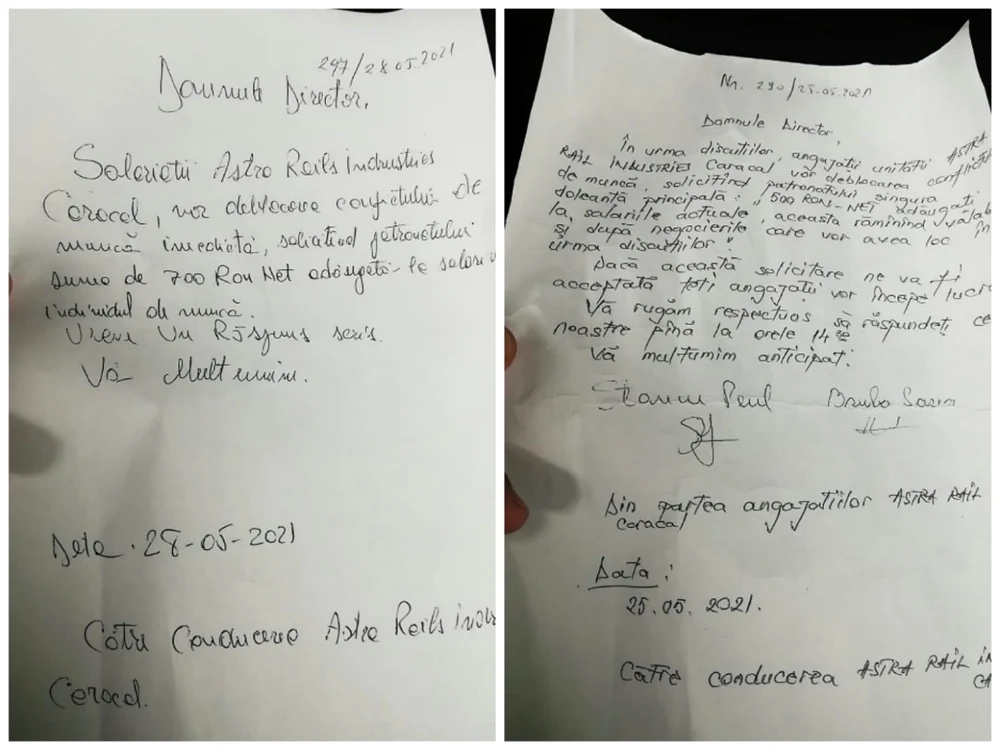 297/28.05.2021
Domnule Director,
Salariatii Astra Rails Industries
Caracal, vor deblocarea conflictului de
muncă imediată, solicitînd patronatului
suma de 700 Ron Net adăugată la salari
individul de muncă.
Vrem Un Răspuns scris.
Vă Multumim.
Data. 28-05-2021
Către Conducerea Astra Rails indu
Caracal.
Nr. 290/25.05.2021
Domnule Director,
În urma discuțiilor, angajații unității ASTRA
RAIL INDUSTRIES Caracal vor deblocarea conflictul
de muncă, solicitînd patronatului singura
doleanță principală: „500 RON-NET adăugați
la, salariile actuale, aceasta rămînînd valab
și după negocierile care vor avea loc în
urma discuțiilor".
Dacă această solicitare ne va fi
acceptată toți angajații vor începe lucr
Vă rugăm respectuos să răspundeți ce
noastre pînă la orele 14
Vă mulțumim anticipat.
Stanciu Paul
Din partea angajatiilor ASTRA RAIL
caracal
Data:
25.05.2021.
Către conducerea ASTRA RAIL IN
CA